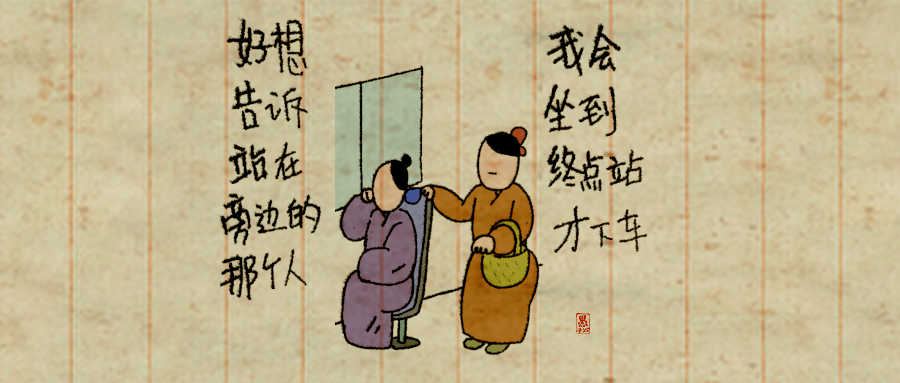 好想
告诉
站在
旁边的
那个人
我会
坐到
终点站
才下车